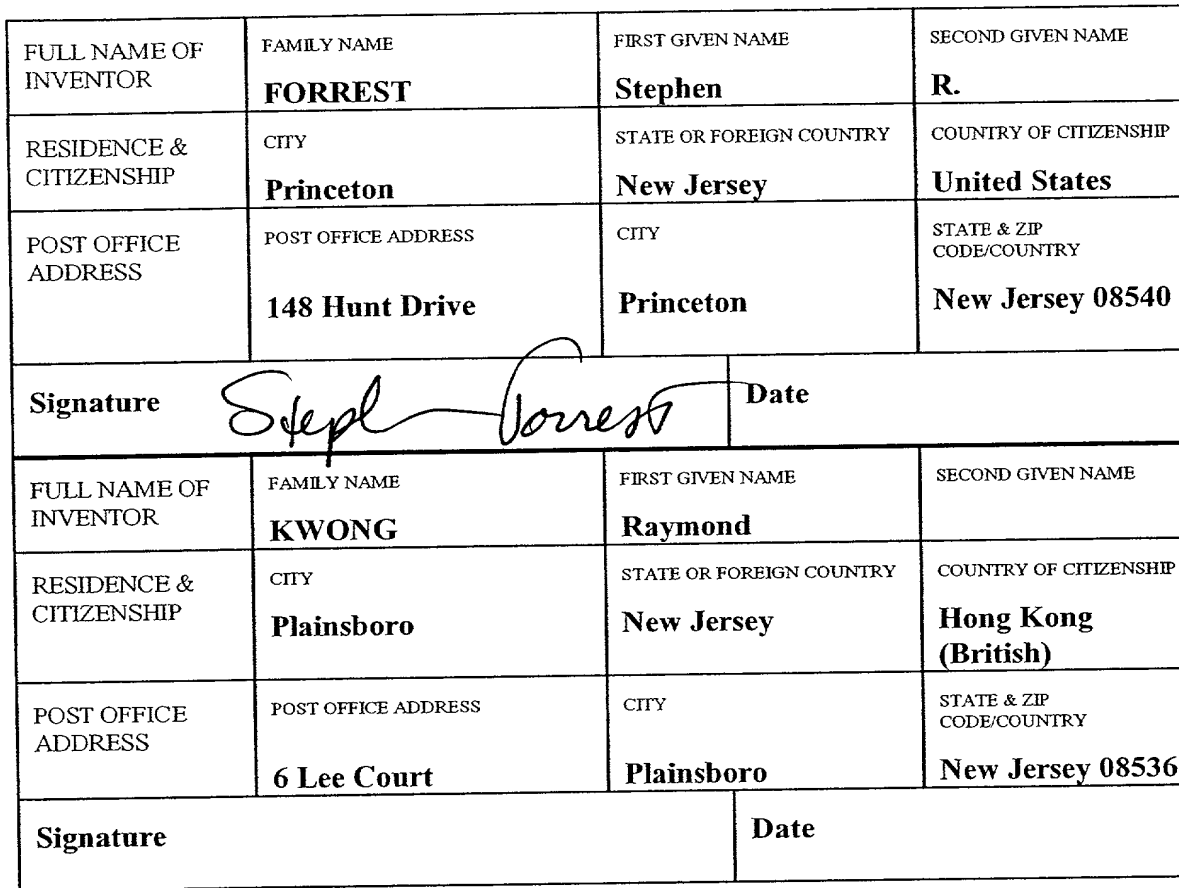 FULL NAME OF INVENTOR
FAMILY NAME
FORREST
FIRST GIVEN NAME
Stephen
SECOND GIVEN NAME
R.
RESIDENCE & CITIZENSHIP
CITY
Princeton
STATE OR FOREIGN COUNTRY
New Jersey
COUNTRY OF CITIZENSHIP
United States
POST OFFICE ADDRESS
POST OFFICE ADDRESS
148 Hunt Drive
CITY
Princeton
STATE & ZIP CODE/COUNTRY
New Jersey 08540
Signature
Stephen Forrest
Date
FULL NAME OF INVENTOR
FAMILY NAME
KWONG
FIRST GIVEN NAME
Raymond
SECOND GIVEN NAME
RESIDENCE & CITIZENSHIP
CITY
Plainsboro
STATE OR FOREIGN COUNTRY
New Jersey
COUNTRY OF CITIZENSHIP
Hong Kong
(British)
POST OFFICE ADDRESS
POST OFFICE ADDRESS
6 Lee Court
CITY
Plainsboro
STATE & ZIP CODE/COUNTRY
New Jersey 08536
Signature
Date